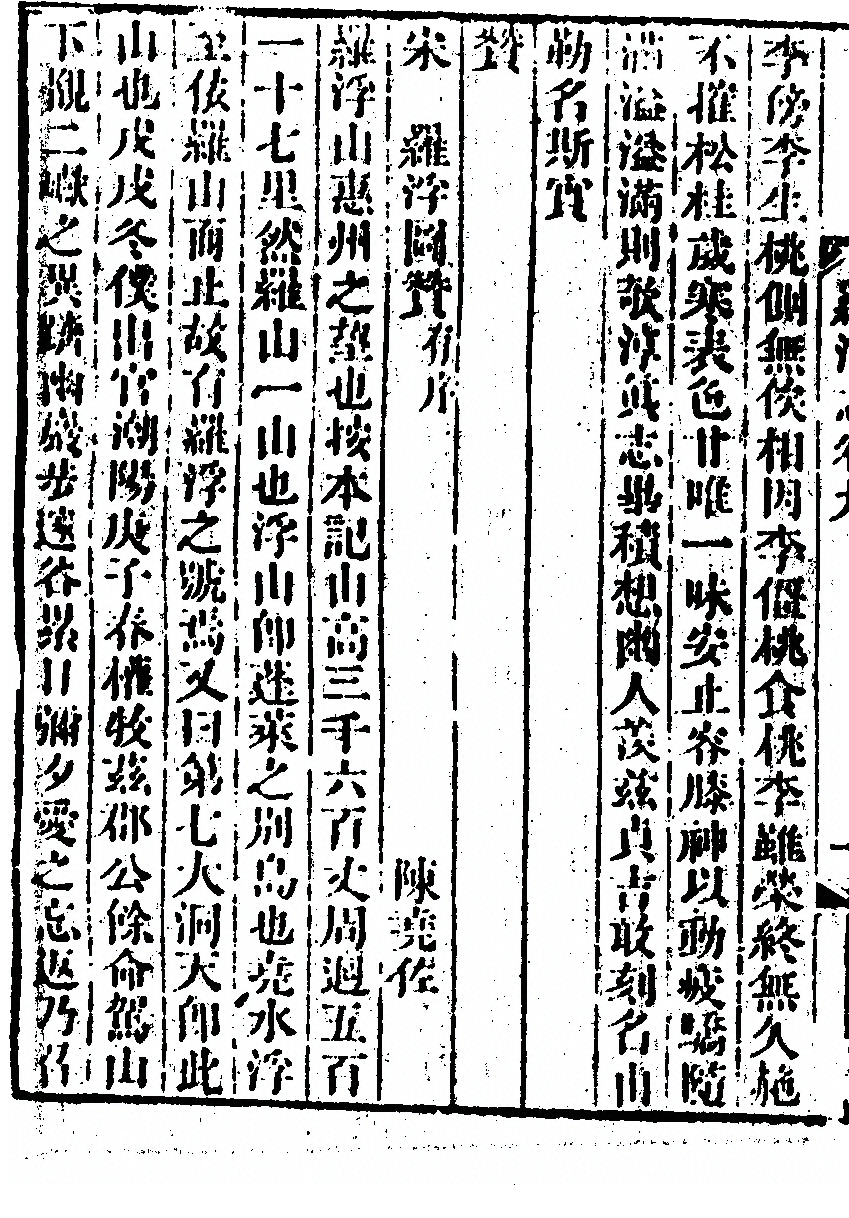 李傍李生桃側無俟相因李僵桃食桃李雖榮終無久施
不摧松桂歲寒表色甘唯一味安止容膝神以動疲驕隨
滿溢溢滿則欹淳貞志業積想幽人茨茲真吉敢刻名山
勒名斯實
贊
宋 羅浮圖贊有序 陳堯佐
羅浮山惠州之望也按本記山高三千六百丈周迴五百
一十七里然羅山一山也浮山即蓬萊之別島也堯水浮
至依羅山而止故有羅浮之號焉又曰第七大洞天即此
山也戊戌冬僕出官潮陽庚子春權牧茲郡公餘命駕山
下觀二嶽之異躋幽巖步邃谷累日彌夕愛之忘返乃召